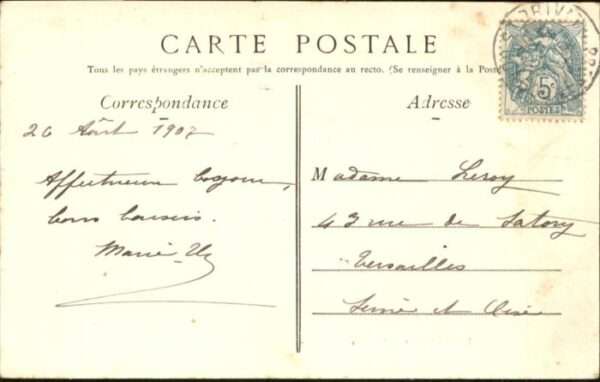 CARTE POSTALE
Tous les pays étrangers n'acceptent pas la correspondance au recto. (Se renseigner à la Poste
Correspondance
Adresse
5c
POSTES
26 Août 1907
Affectueux bonjour,
bons baisers.
Marie
Madame Leroy
43 rue de Satory
Versailles
Seine et Oise